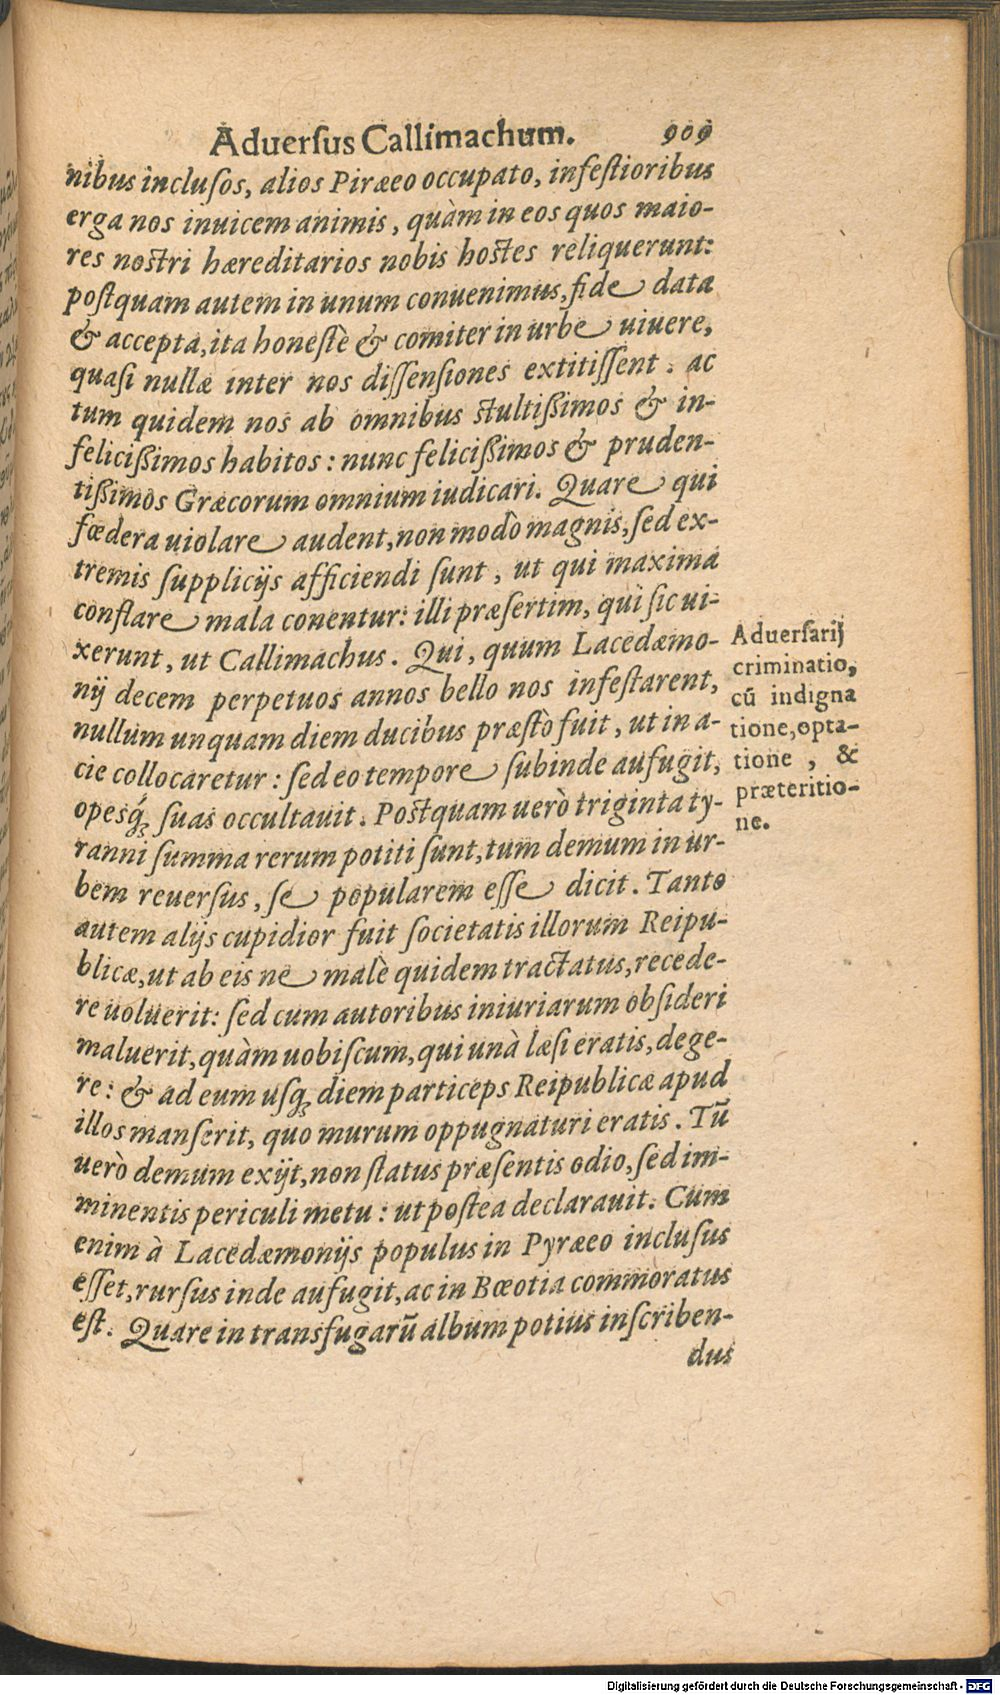 Aduersus Callimachum. 909
nibus inclusos, alios Piræeo occupato, infestioribus
erga nos inuicem animis, quàm in eos quos maio-
res nostri hæreditarios nobis hostes reliquerunt:
postquam autem in unum conuenimus, fide data
& accepta, ita honestè & comiter in urbe uiuere,
quasi nullæ inter nos dissensiones extitissent. ac
tum quidem nos ab omnibus stultißimos & in-
felicißimos habitos: nunc felicißimos & pruden-
tißimos Græcorum omnium iudicari. Quare qui
fœdera uiolare audent, non modò magnis, sed ex-
tremis supplicijs afficiendi sunt, ut qui maxima
conflare mala conentur: illi præsertim, qui sic ui-
xerunt, ut Callimachus. Qui, quum Lacedæmo-
nij decem perpetuos annos bello nos infestarent,
nullum unquam diem ducibus præstò fuit, ut in a-
cie collocaretur: sed eo tempore subinde aufugit,
opesq́ꝫ suas occultauit. Postquam uerò triginta ty-
ranni summa rerum potiti sunt, tum demum in ur-
bem reuersus, se popularem esse dicit. Tanto
autem alijs cupidior fuit societatis illorum Reipu-
blicæ, ut ab eis ne malè quidem tractatus, recede-
re uoluerit: sed cum autoribus iniuriarum obsideri
maluerit, quàm uobiscum, qui unà læsi eratis, dege-
re: & ad eum usqꝫ diem particeps Reipublicæ apud
illos manserit, quo murum oppugnaturi eratis. Tū
uerò demum exijt, non status præsentis odio, sed im-
minentis periculi metu: ut postea declarauit. Cum
enim à Lacedæmonijs populus in Pyræeo inclusus
esset, rursus inde aufugit, ac in Bœotia commoratus
est. Quare in transfugarū album potius inscriben-
dus
Aduersarij
criminatio,
cū indigna
tione, opta-
tione, &
præteritio-
ne.
Digitalisierung gefördert durch die Deutsche Forschungsgemeinschaft - DFG